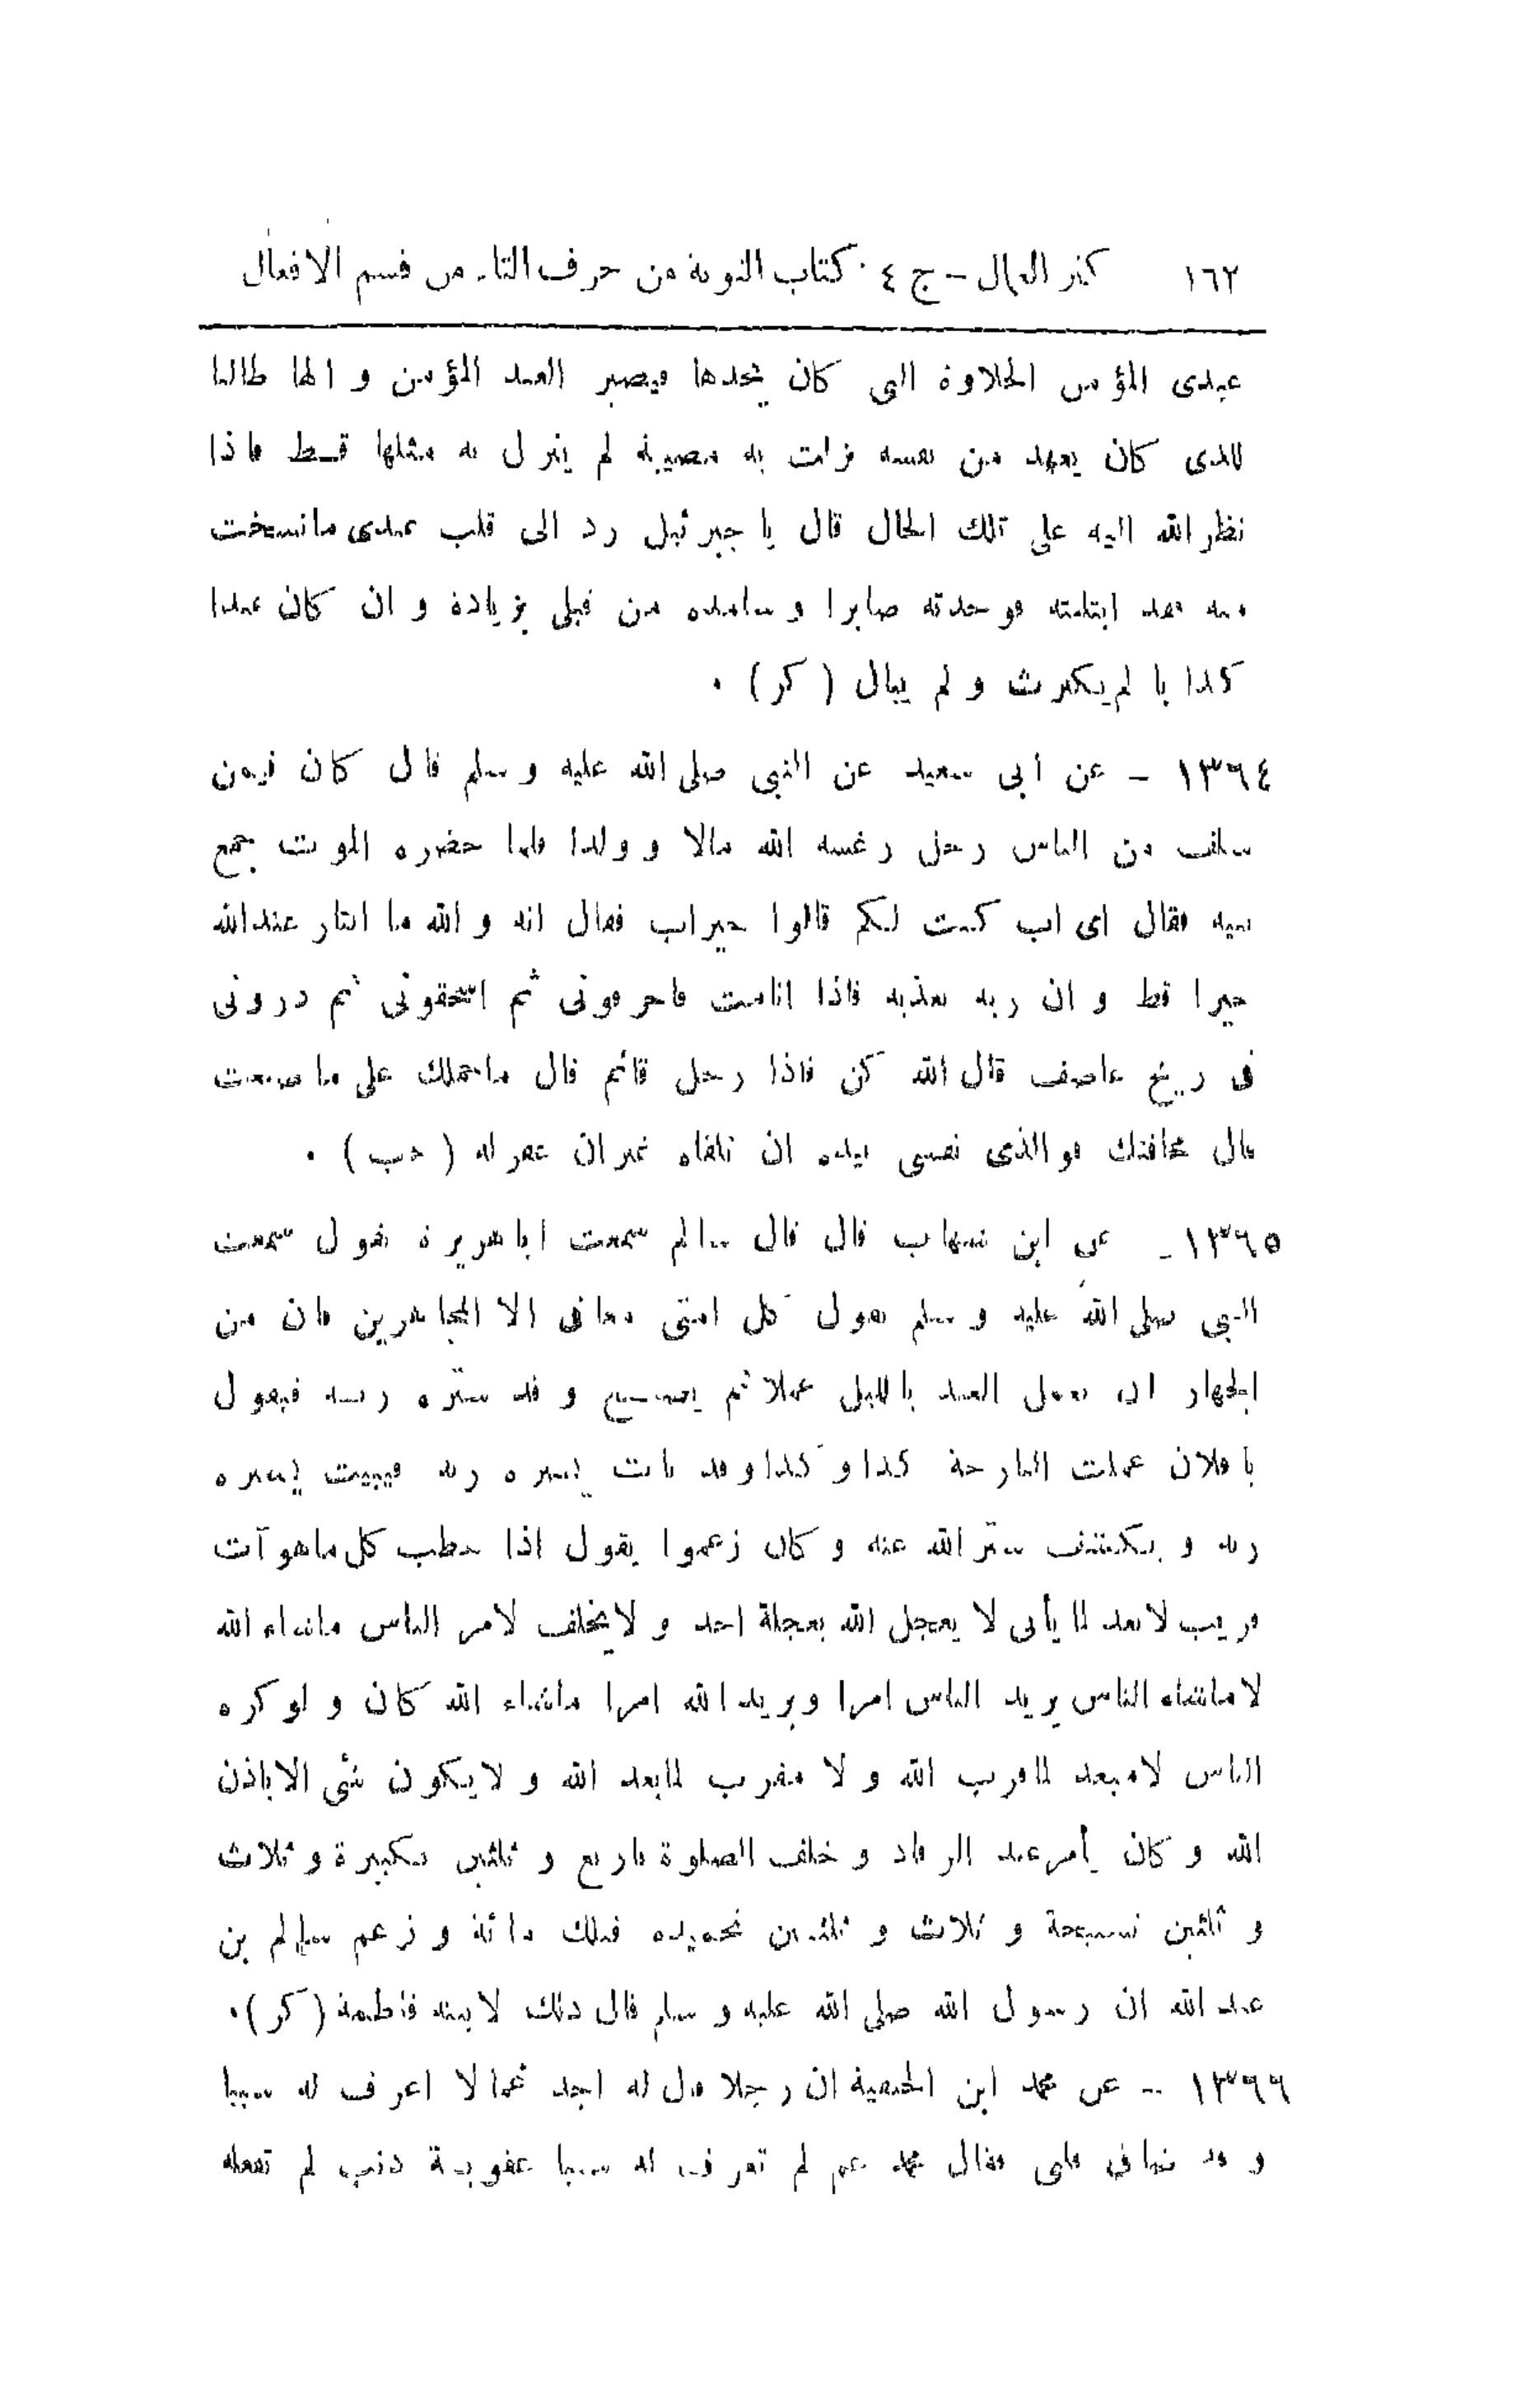 ١٦٢ كنز العمال - ج ٤ . كتاب التوبة من حرف التاء من قسم الافعال
عبدى المؤمن الحلاوة التى كان يجدها فيصير العبد المؤمن و الها طالبا
للذى كان يعهد من نفسه نزلت به مصيبة لم ينزل به مثلها قـط فاذا
نظر الله اليه على تلك الحال قال يا جبرئيل رد الى قلب عبدى ما نسخت
منه فقد ابتليته فوجدته صابرا و سامده من قبلى بزيادة و ان كان عبدا
كذابا لم يكترث و لم يبال ( كر ) .
١٣٦٤ - عن ابى سعيد عن النبى صلى الله عليه و سلم قال كان فيمن
سلف من الناس رجل رغسه الله مالا و ولدا فلما حضره الموت جمع
بنيه فقال اى اب كنت لكم قالوا خير اب فقال انه و الله ما ابتار عند الله
خيرا قط و ان ربه يعذبه فاذا انامت فاحرقونى ثم اسحقونى ثم ذرونى
فى ريح عاصف قال الله كن فاذا رجل قائم قال ما حملك على ما صنعت
قال مخافتك فو الذى نفسى بيده ان تلقاه غير ان غفر له ( حب ) .
١٣٦٥ - عن ابن شهاب قال قال سالم سمعت ابا هريرة يقول سمعت
النبى صلى الله عليه و سلم يقول كل امتى معافى الا المجاهرين فان من
الجهار ان يعمل العبد بالليل عملا ثم يصبح و قد ستره ربـه فيقول
يا فلان عملت البارحة كذا و كذا و قد بات يستره ربه فيبيت يستره
ربه و يكشف ستر الله عنه و كان زعموا يقول اذا خطب كل ما هو آت
قريب لا بعد لما يأتى لا يعجل الله بعجلة احد و لا يخلف لامر الناس ما شاء الله
لا ما شاء الناس يريد الناس امرا و يريد الله امرا ما شاء الله كان و لو كره
الناس لا مبعد لما قرب الله و لا مقرب لما بعد الله و لا يكون شئ الا باذن
الله و كان يأمر عند الرقاد و خلف الصلوة باربع و ثلثين تكبيرة و ثلاث
و ثلثين تسبيحة و ثلاث و ثلثين تحميده فتلك مائة و زعم سالم بن
عبد الله ان رسول الله صلى الله عليه و سلم قال ذلك لابنته فاطمة ( كر ) .
١٣٦٦ - عن محمد ابن الحنفية ان رجلا قال له اجد غما لا اعرف له سببا
و قد ضاق قلبى فقال محمد غم لم تعرف له سببا عقوبـة ذنب لم تفعله